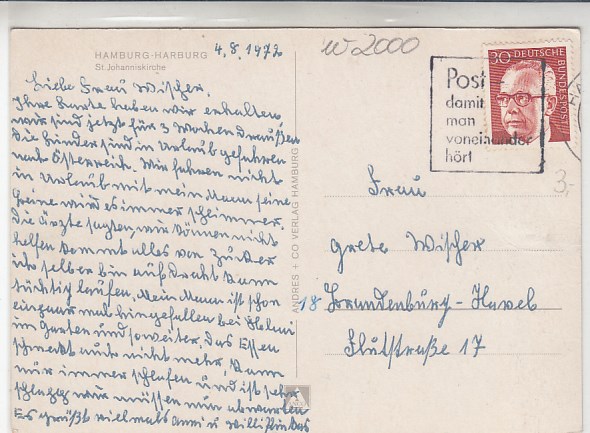 HAMBURG-HARBURG
St. Johanniskirche
4.8.1972
Liebe Frau Wischer.
Ihre Karte haben wir erhalten,
wir sind jetzt für 3 Wochen draußen
die Kinder sind in Urlaub gefahren
nach Österreich. Wir fahren nicht
in Urlaub mit mein Mann seine
Beine wird es immer schlimmer.
Die Ärzte sagten, wir können nicht
helfen kommt alles von Zucker
ich selber bin auf Draht kann
tüchtig laufen. Mein Mann ist schon
ein paar mal hingefallen bei
im Garten und so weiter. Das Essen
schmeckt auch nicht mehr. Kann
nur immer schlafen und ist sehr
wir müssen nun abwarten
Es grüßt vielmals und Willi
ANDRES + CO VERLAG HAMBURG
W 2000
30 DEUTSCHE
BUNDESPOST
Post
damit
man
voneinander
hört
3,-
Frau
Grete Wischer
18 Brandenburg-Havel
Flutstraße 17